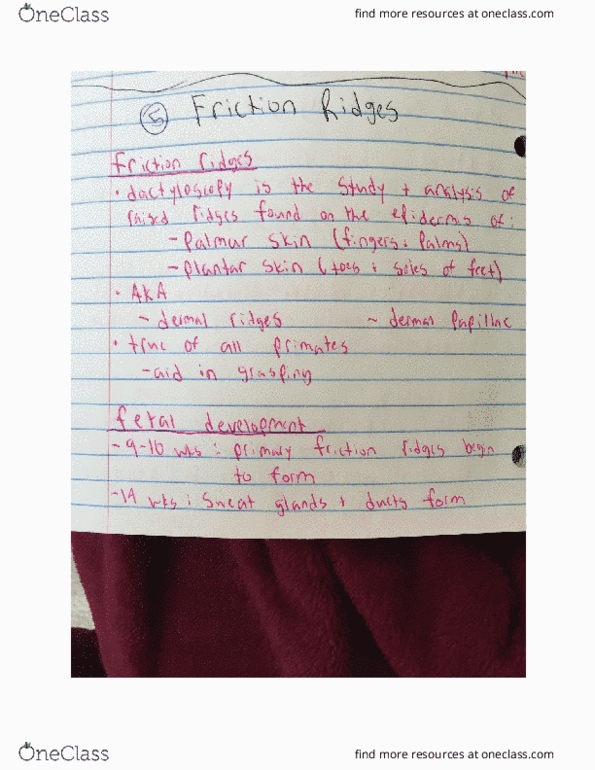 OneClass
find more resources at oneclass.com
⑤ Friction Ridges
friction ridges
• dactyloscopy is the study + analysis of
raised ridges found on the epidermis of:
- Palmar skin (fingers + Palms)
- Plantar skin (toes + soles of feet)
• AKA
~ dermal ridges ~ dermal Papillae
• true of all primates
-aid in grasping
fetal development
-9-10 wks : primary friction ridges begin
to form
-14 wks : Sweat glands + ducts form
OneClass
find more resources at oneclass.com